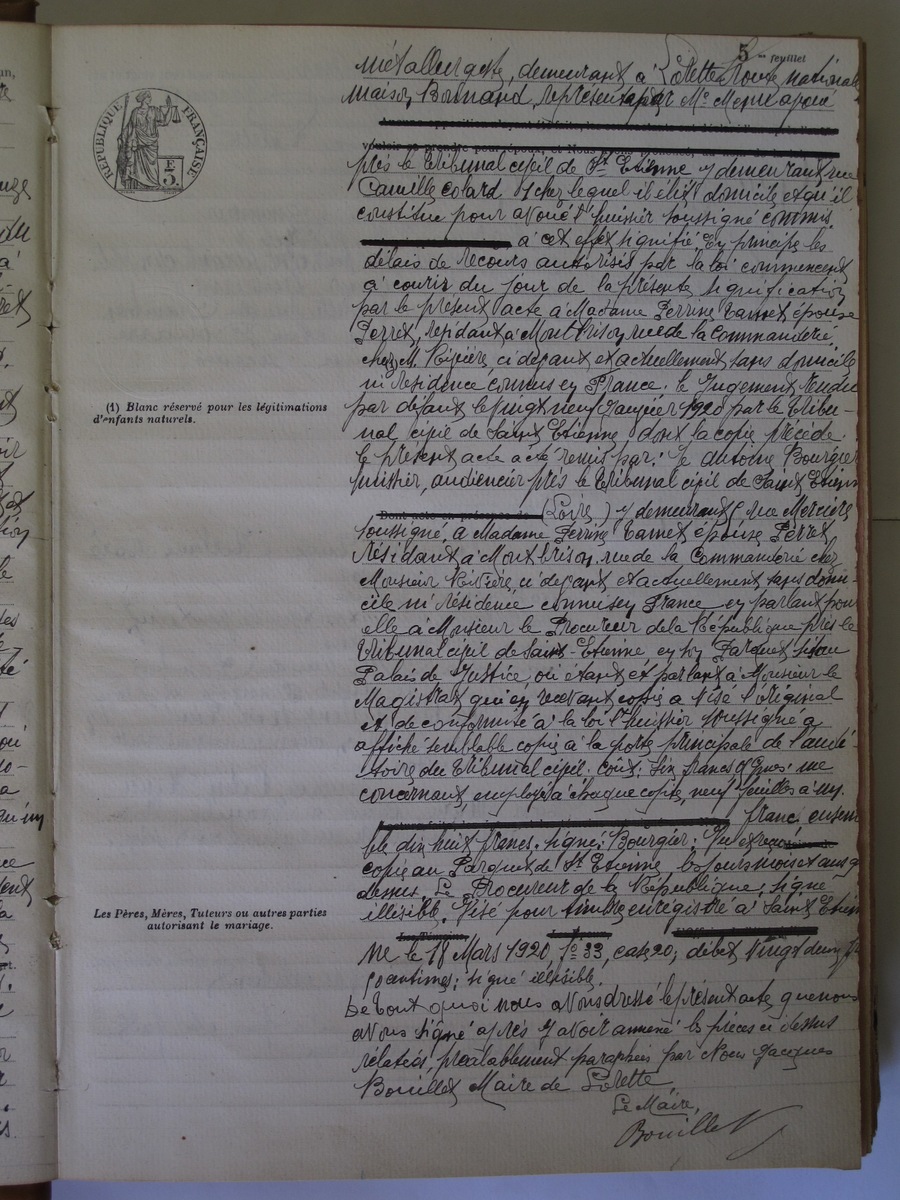 5 me feuillet
métallurgiste, demeurant à Lorette, route nationale
maison Bonnand, représenté par Me Menue avoué
vouloir se prendre pour époux, et Nous
près le Tribunal civil de St Etienne y demeurant rue
Camille Colard, chez lequel il élit domicile et qu'il
constitue pour avoué l'huissier soussigné commis
à cet effet, signifié. En principe les
délais de recours autorisés par la loi commencent
à courir du jour de la présente signification
par le présent acte à Madame Perrine Carret épouse
Perret, résidant à Montbrison, rue de la Commanderie,
chez M. Rivière, ci devant, et actuellement sans domicile
ni résidence connus en France. le Jugement rendu
par défaut le vingt neuf Janvier 1920 par le Tribu-
nal civil de Saint Etienne, dont la copie précède.
le présent acte acte remis par: Je Antoine Bourgier
huissier, audiencier près le Tribunal civil de Saint Etienne
(Loire) y demeurant rue Mercière
soussigné, à Madame Perrine Carret épouse Perret,
résidant à Montbrison, rue de la Commanderie chez
Monsieur Rivière, ci devant et actuellement sans domi-
cile ni résidence connus en France en parlant pour
elle à Monsieur le Procureur de la République près le
Tribunal civil de Saint Etienne en son Parquet sis au
Palais de Justice où étant et parlant à Monsieur le
Magistrat qui en recevant copie a visé l'original
et de conformité à la loi l'huissier soussigné a
affiché semblable copie à la porte principale de l'audi-
toire du Tribunal civil. Coût: six francs me
concernant, employé à chaque copie, neuf feuilles à un
franc, ensem
ble dix huit francs. signé: Bourgier: Vu et reçu
copie au Parquet de St Etienne les jours mois et ans
dessus. Le Procureur de la République; signé
illisible. Visé pour timbre enregistré à Saint Etien
ne le 18 Mars 1920, fo 33, case 20; débet vingt deux
50 centimes; signé illisible.
De tout quoi nous avons dressé le présent acte, que nous
avons signé après y avoir annexé les pièces ci dessus
relatées, préalablement paraphées par Nous Jacques
Bouillet Maire de Lorette
Le Maire,
Bouillet
RÉPUBLIQUE FRANÇAISE
(1) Blanc réservé pour les légitimations
d'enfants naturels.
Les Pères, Mères, Tuteurs ou autres parties
autorisant le mariage.